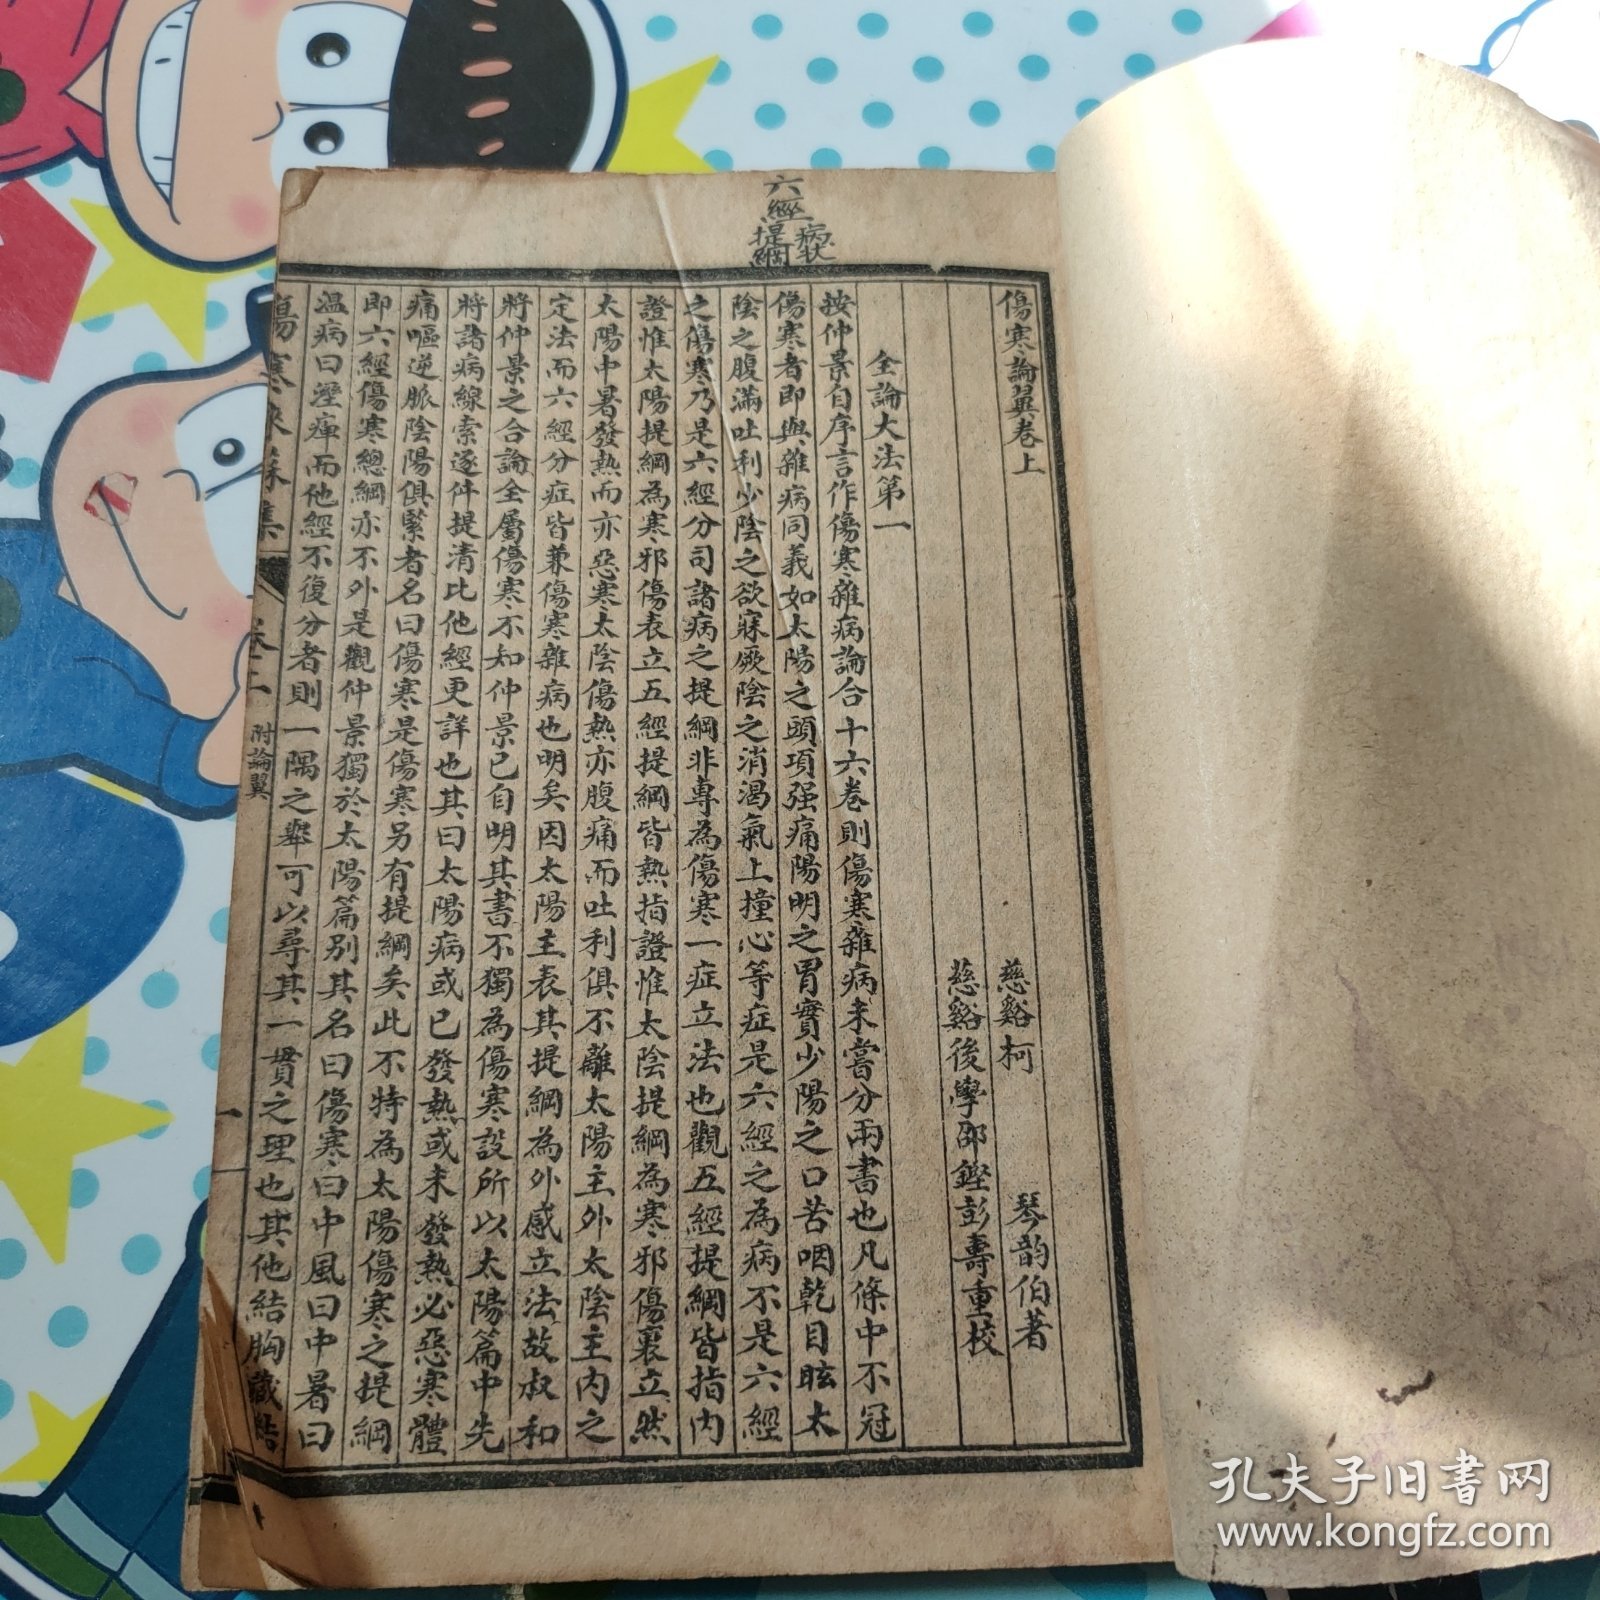 六經
病狀
提綱
傷寒論翼卷上
慈谿柯 琴韵伯著
慈谿後學邵鏗彭壽重校
全論大法第一
按仲景自序言作傷寒雜病論合十六卷則傷寒雜病未嘗分兩書也凡條中不冠
傷寒者即與雜病同義如太陽之頭項强痛陽明之胃實少陽之口苦咽乾目眩太
陰之腹滿吐利少陰之欲寐厥陰之消渴氣上撞心等症是六經之為病不是六經
之傷寒乃是六經分司諸病之提綱非專為傷寒一症立法也觀五經提綱皆指內
證惟太陽提綱為寒邪傷表立五經提綱皆熱指證惟太陰提綱為寒邪傷裏立然
太陽中暑發熱而亦惡寒太陰傷熱亦腹痛而吐利俱不離太陽主外太陰主內之
定法而六經分症皆兼傷寒雜病也明矣因太陽主表其提綱為外感立法故叔和
將仲景之合論全屬傷寒不知仲景已自明其書不獨為傷寒設所以太陽篇中先
將諸病線索逐件提清比他經更詳也其曰太陽病或已發熱或未發熱必惡寒體
痛嘔逆脈陰陽俱緊者名曰傷寒是傷寒另有提綱矣此不特為太陽傷寒之提綱
即六經傷寒總綱亦不外是觀仲景獨於太陽篇别其名曰傷寒曰中風曰中暑曰
溫病曰溼痺而他經不復分者則一隅之舉可以尋其一貫之理也其他結胸藏結
傷寒來蘇集 卷上 附論翼 一
孔夫子旧书网
www.kongfz.com